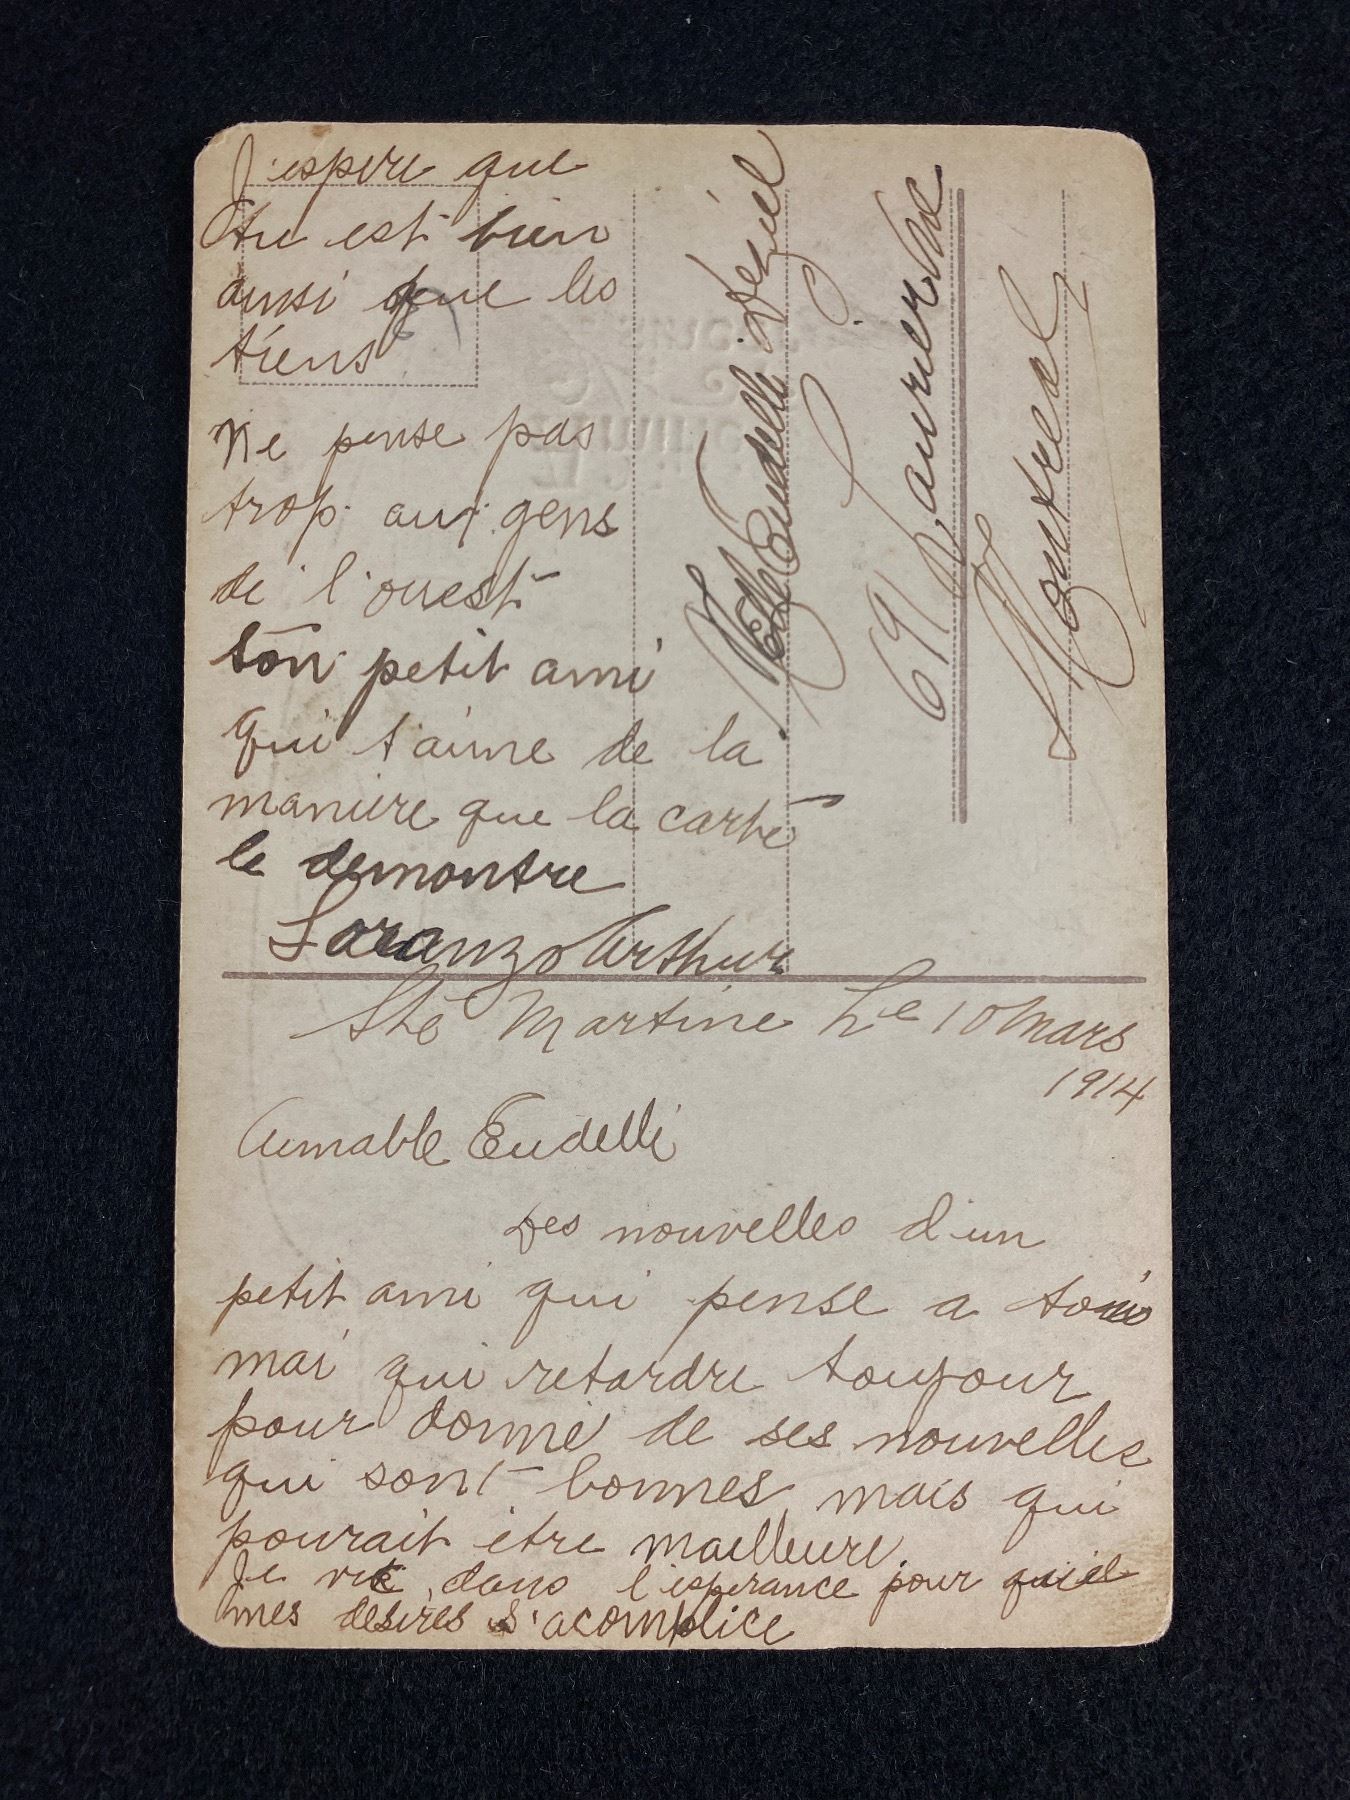 Ste Martine Le 10 Mars
1914
Aimable Eudelli
Des nouvelles d'un
petit ami qui pense a toi
mai qui retardre toujour
pour donné de ses nouvelles
qui sont bonnes mais qui
pourait être mailleure.
Je vie dans l'esperance pour que
mes desires s'acomplice
J'espere que
tu est bien
ainsi que les
tiens
Ne pense pas
trop aux gens
de l'ouest
ton petit ami
qui t'aime de la
maniere que la carte
le demontre
Loranzo Arthur
Melle Eudelli
691 Laurier
Montreal